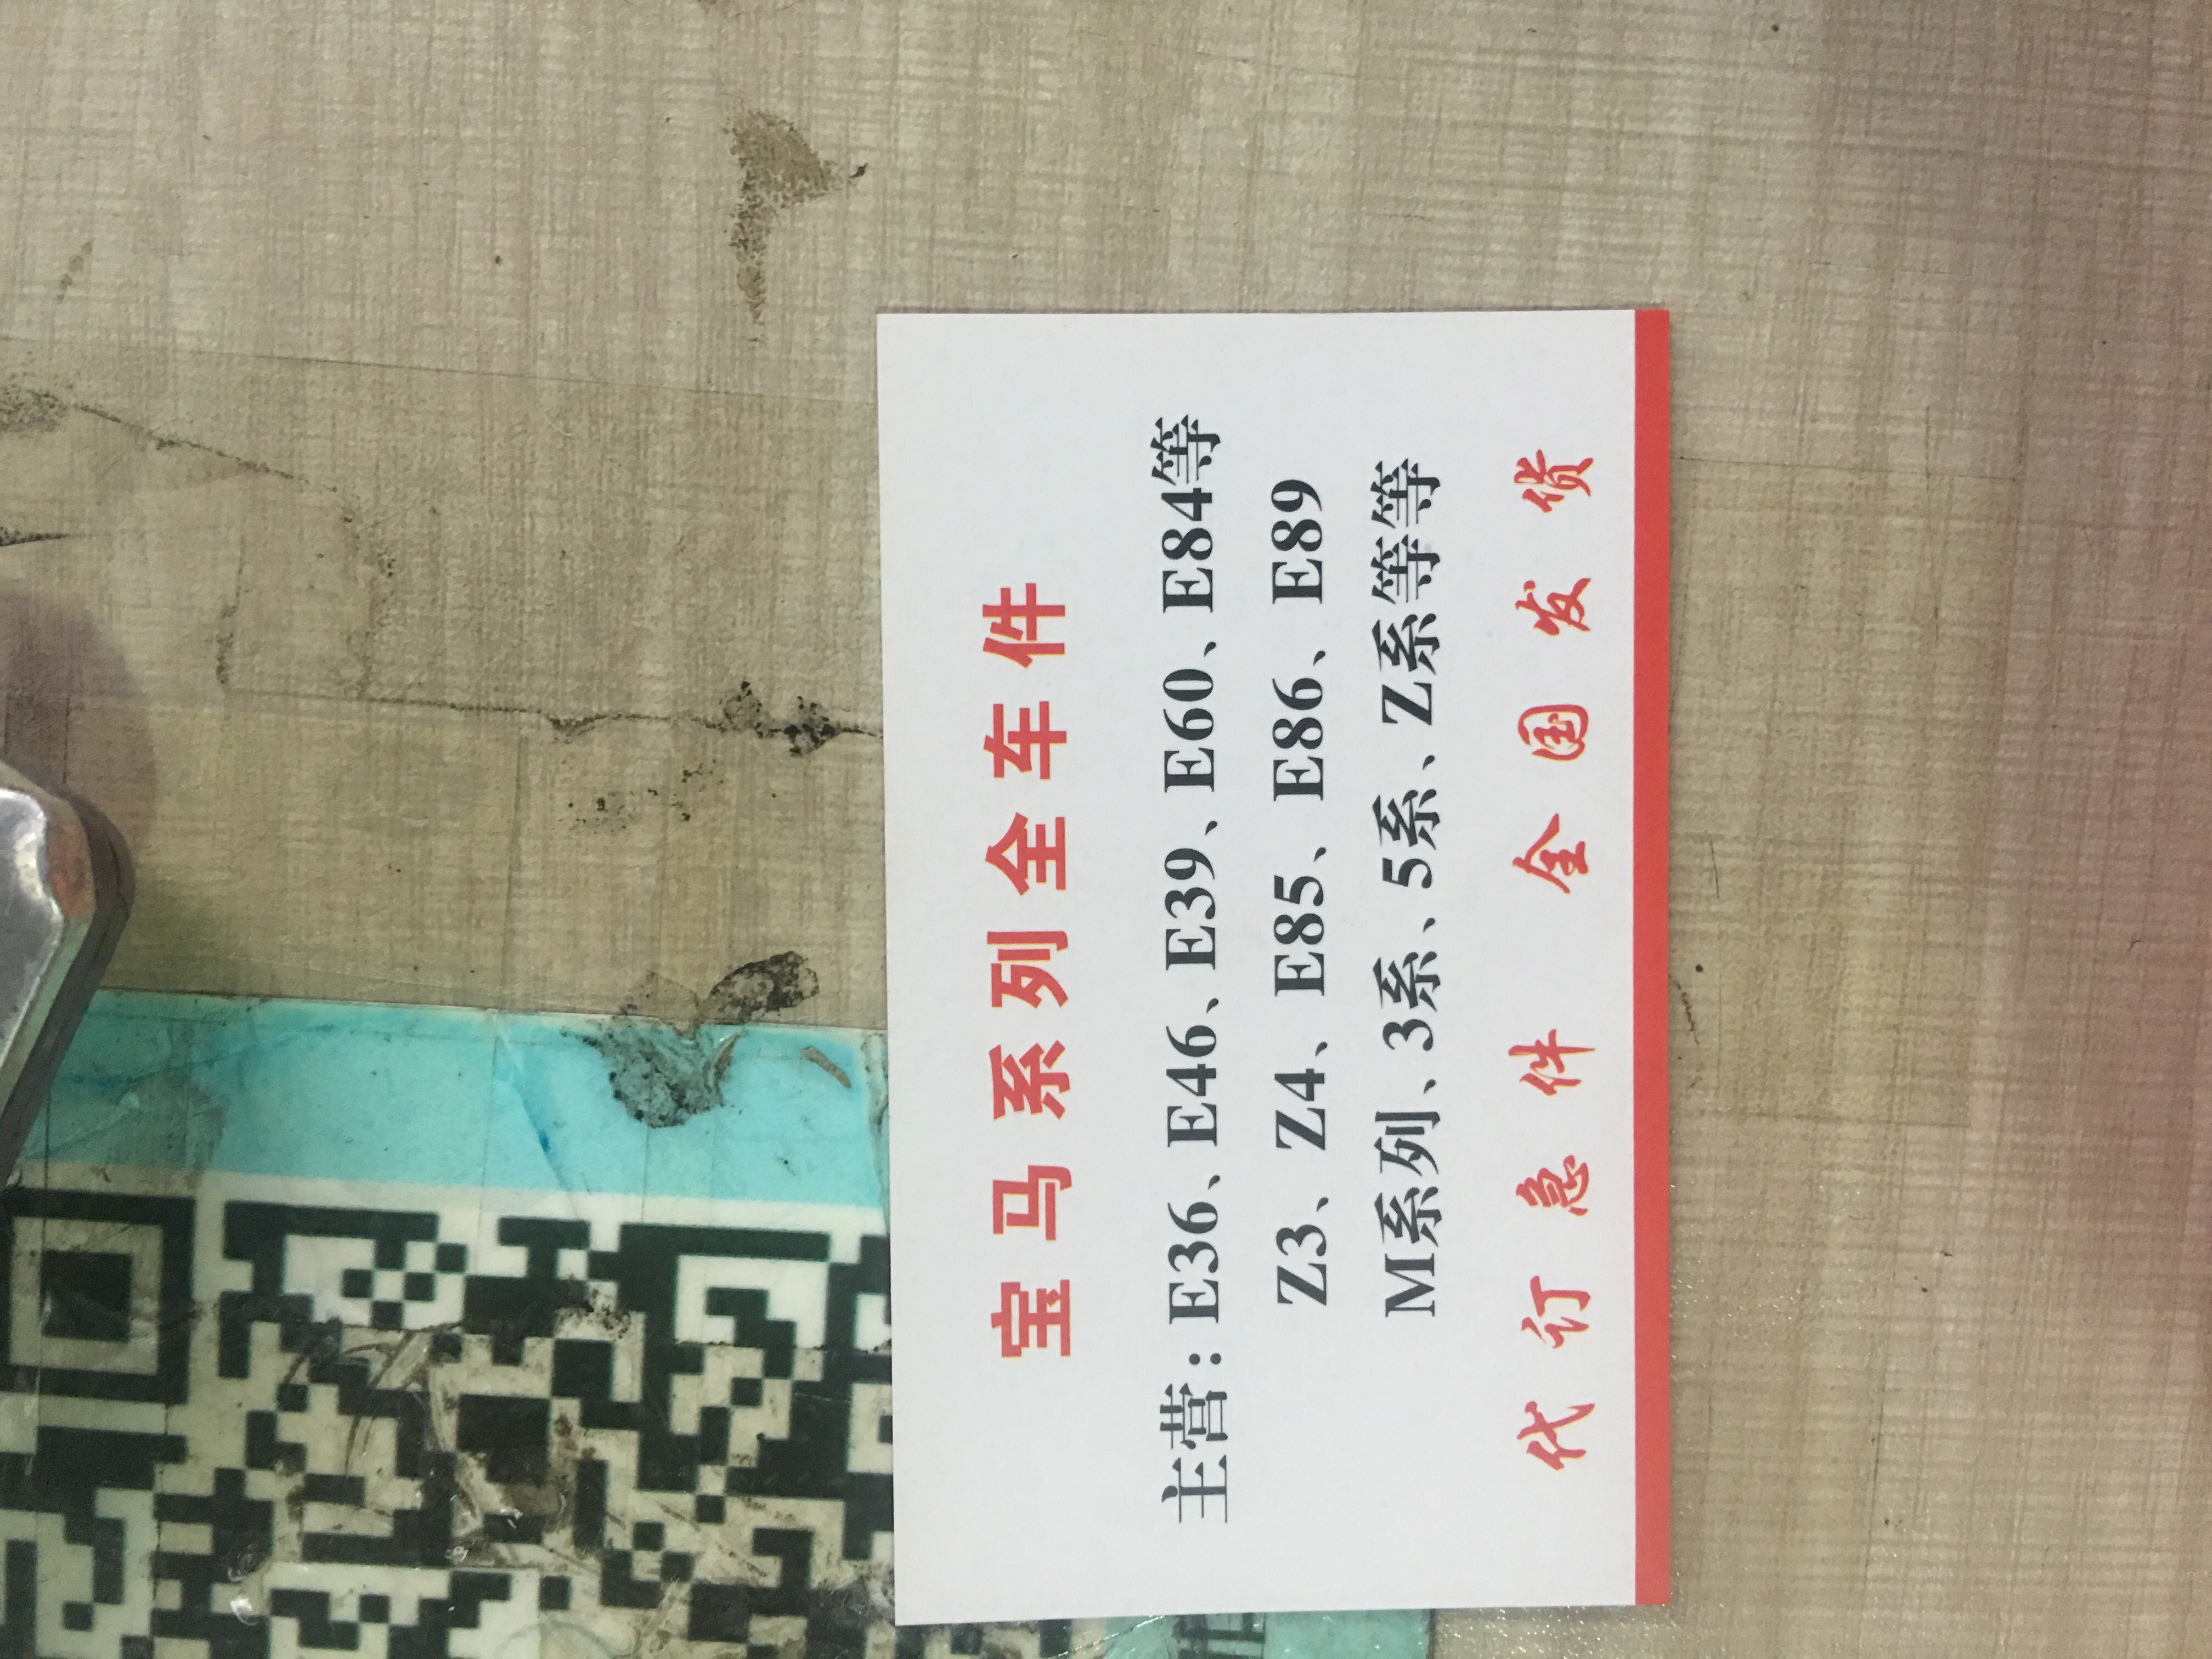 宝马系列全车件
主营：E36、E46、E39、E60、E84等
Z3、Z4、E85、E86、E89
M系列、3系、5系、Z系等等
代订急件 全国发货